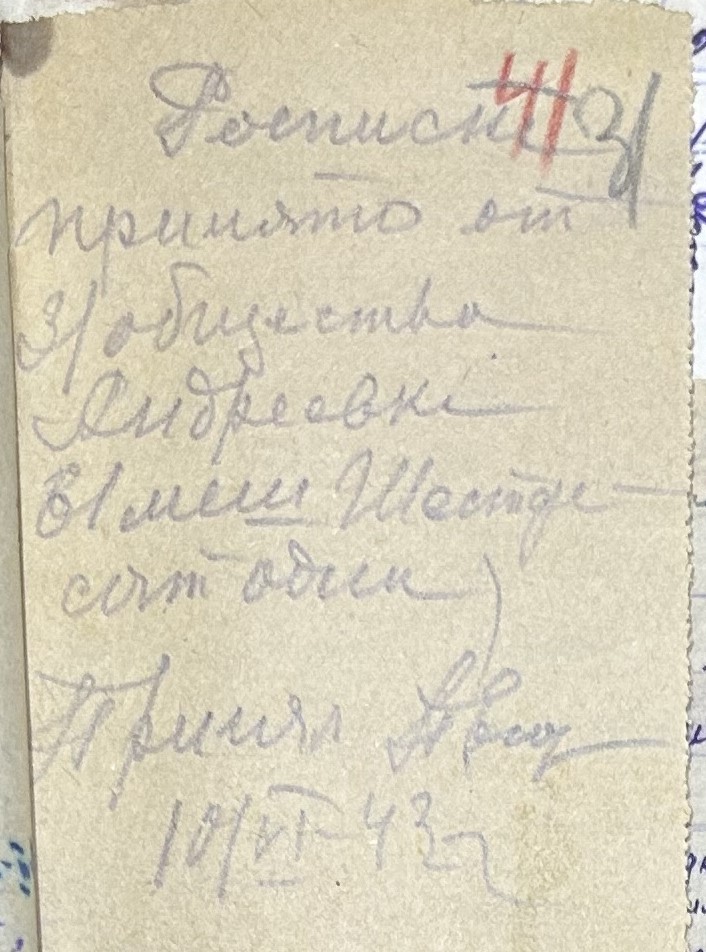 Росписка 41 31
принято от
3/ общества
Андреевки
61 меш Шестде
сят один)
Принял
10/VI-43 г